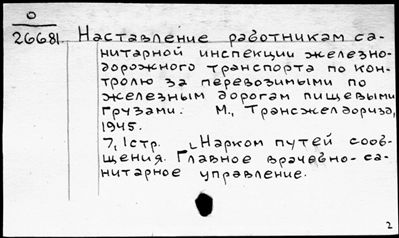 О
26681. Наставление работникам са-
нитарной инспекции железно-
дорожного транспорта по кон-
тролю за перевозимыми по
железным дорогам пищевыми
грузами. М., Трансжелдориздат,
1945.
7,1стр. Нарком путей сооб-
щения. Главное врачебно-са-
нитарное управление.
2